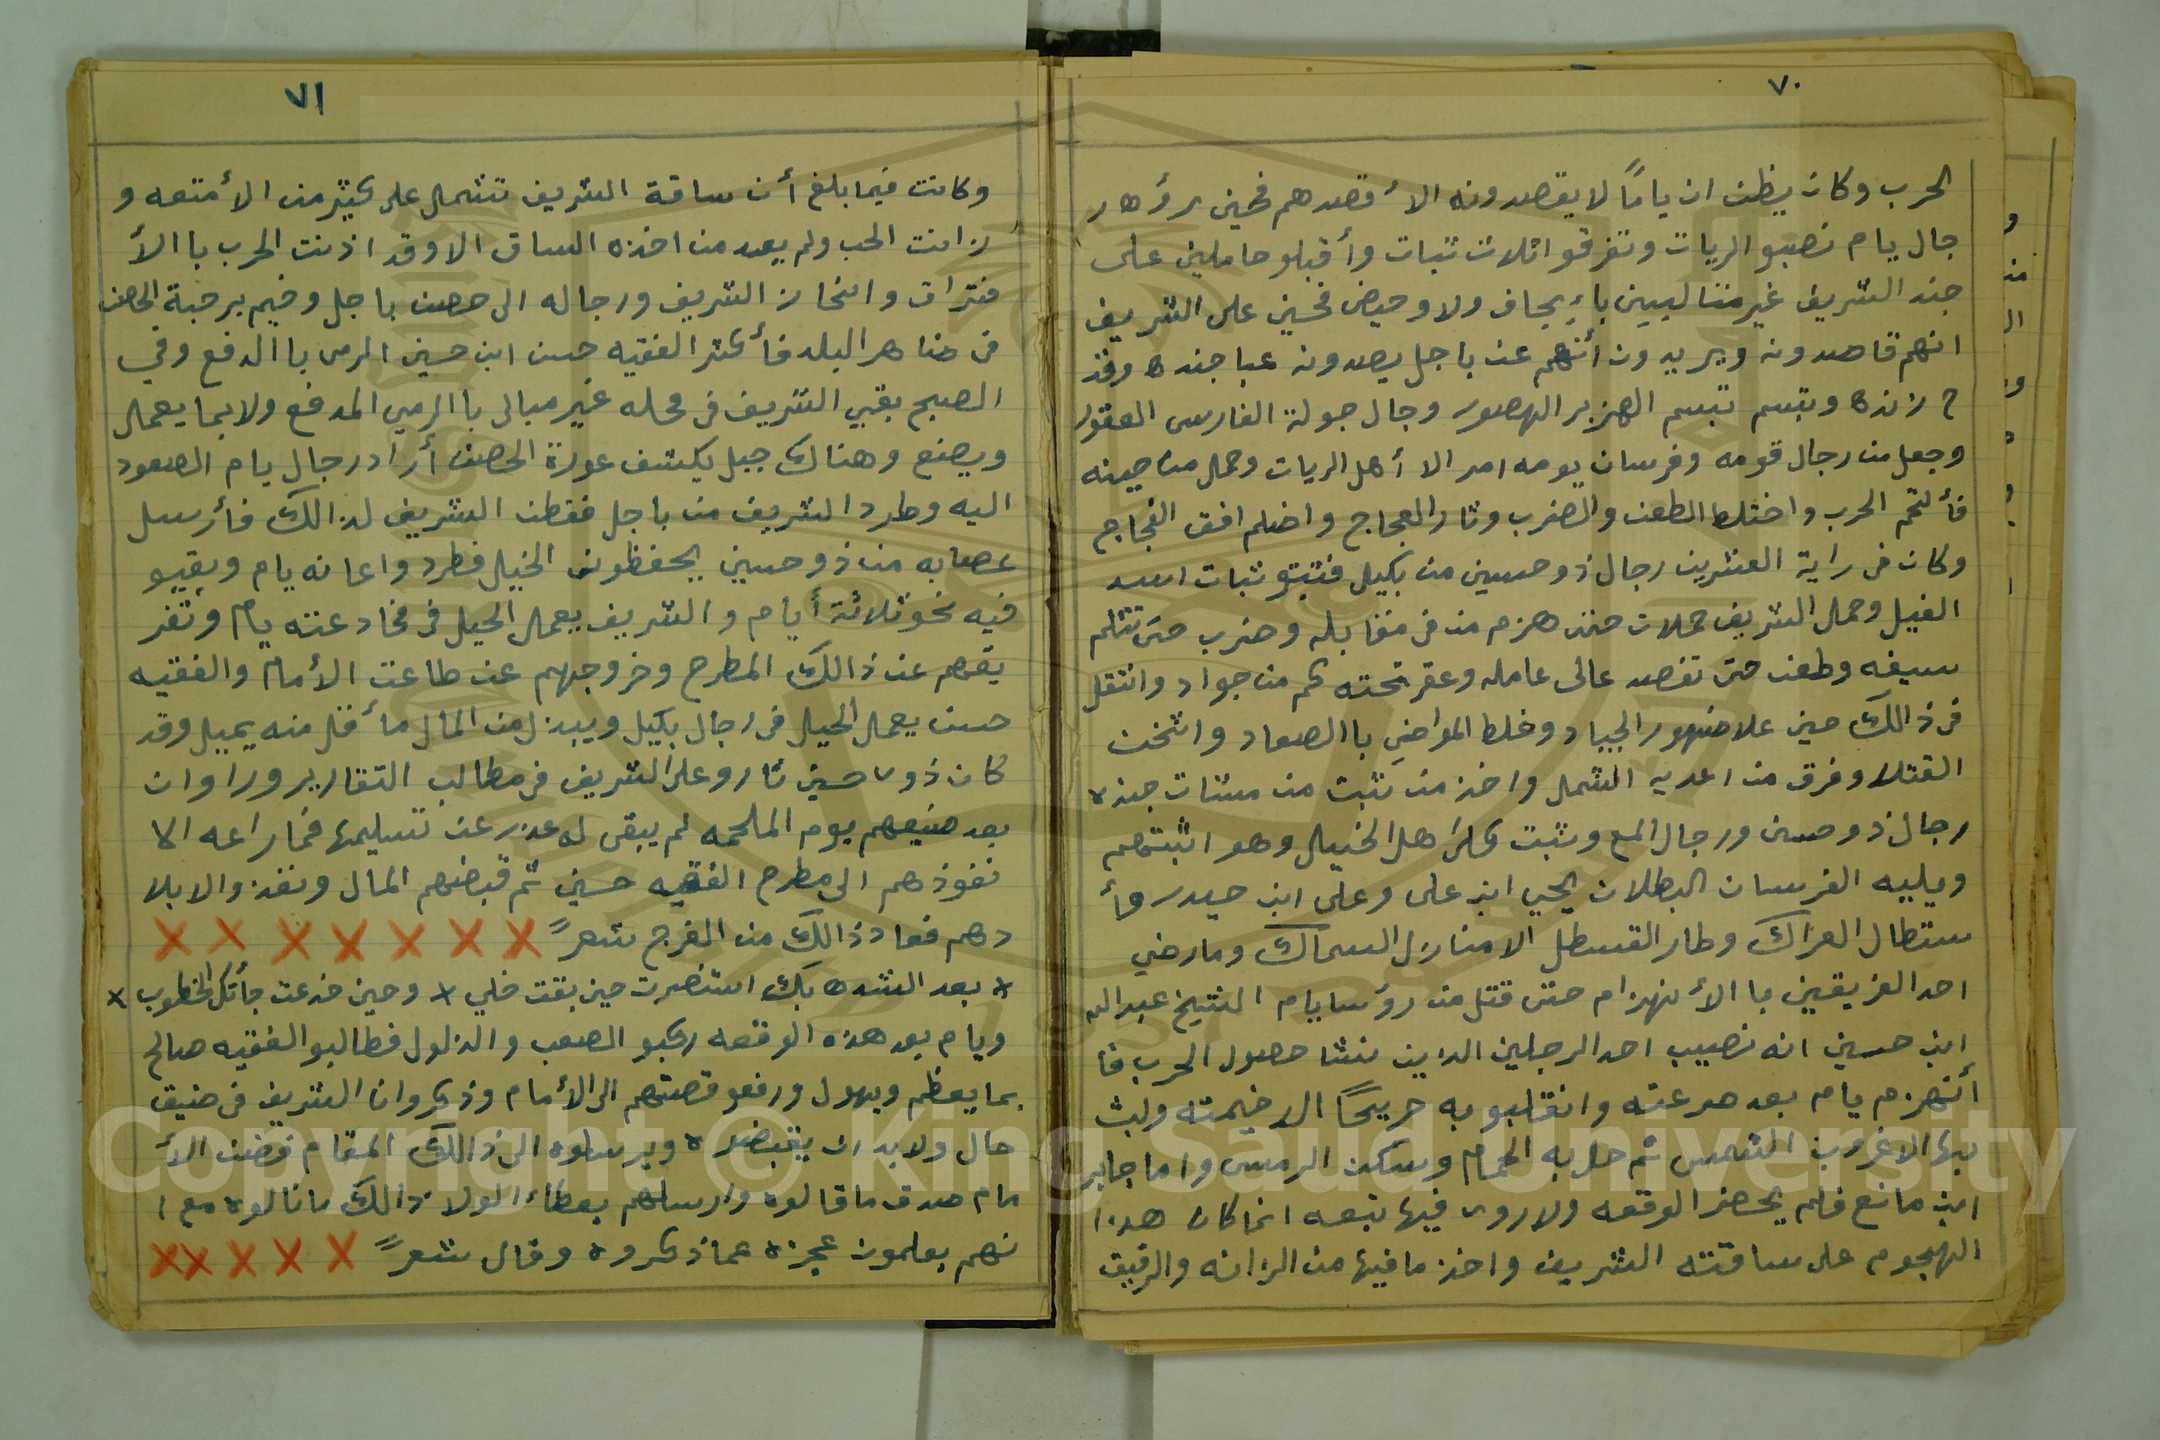 ٧٠
الحرب وكان يظن ان ياماً لا يقصدونه الا قصدهم فحين رؤه ر
جال يام نصبو الريات وتفرقوا ثلاث ثبات وأقبلو حاملين على
جند الشريف غير منتا ليين بإيجاف ولا وحيف فحين على الشريف
انهم قاصدونه ويريدون أنهم عن باجل يصدونه عبا جنده وقد
ح زنده وتبسم تبسم الهزبر الهصور وجال جولة الفارس العقور
وجعل من رجال قومه وفرسان يومه امر الا أهل الريات وحمل من حينه
فألتحم الحرب واختلط الطعن والضرب وثار العجاج واضلم افق الفجاج
وكان في راية العشرين رجال ذو حسين من بكيل فثبتو ثبات اسد
الغيل وحمل الشريف حملات حتى هزم من في مقابله وضرب حتى تثلم
سيفه وطعن حتى تقصد عالى عامله وعقر تحته كم من جواد وانتقل
في ذالك حين علا ضهور الجياد وخلط المواضي باالصعاد واثخن
القتلا وفرق من اعديه الشمل واخذ من ثبت من مشات جنده
رجال ذو حسين ورجال المع وثبت كل أهل الخيل وهو اثبتهم
ويليه الفرسان البطلان يحي ابن على وعلى ابن حيدر وأ
ستطال العراك وطار القسطل الا منازل السماك وما رضي
احد الفريقين باالأنهزام حتى قتل من رؤسا يام الشيخ عبدالله
ابن حسين انه نصيب احد الرجلين الذين نشا حصول الحرب فا
أنهزم يام بعد صرعته وانقلبو به جريحاً الا خيمته ولبث
بها الا غروب الشمس ثم حل به الحمام وسكن الرمس واما جابر
ابن مانع فلم يحضر الوقعه ولا روى فيها تبعه انما كان هذا
الهجوم على ساقته الشريف واخذ ما فيها من الزانه والرقيق
٧١
وكانت فيما بلغ أن ساقة الشريف تشمل على كثير من الأمتعه و
زانت الحب ولم يعد من اخذه الساق الا وقد اذنت الحرب با الأ
فتراق وانحاز الشريف ورجاله الى حصن باجل وخيم برحبة الحصن
في ضاهر البلد فأكثر الفقيه حسن ابن حسين الرمى با الدفع وفي
الصبح بقي الشريف في محله غير مبالى باالرمي المدفع ولا بما يعمل
ويصنع وهناك جبل يكشف عورة الحصن أراد رجال يام الصعود
اليه وطرد الشريف من باجل ففطن الشريف لذالك فأرسل
عصابه من ذو حسين يحفظون الخيل فطردوا عانه يام وبقيو
فيه نحو ثلاثة أيام والشريف يعمل الحيل في مخادعته يام وتفر
يقهم عن ذالك المطرح وخروجهم عن طاعت الأمام والفقيه
حسن يعمل الحيل في رجال بكيل ويبذل من المال ما أقل منه يميل وقد
كان ذو حسين ثارو على الشريف في مطالب التقارير وراوان
بعد ضيعهم يوم الملحمه لم يبقى له عذر عن تسليمها فما راعه الا
نفوذهم الى مطرح الفقيه حسين ثم قبضهم المال ونفذ والابلا
دهم فعاد ذالك من الفرج شعراً × × × × × × ×
× بعد الشده بك استنصرت حين بقت خلي × وحين خدعت جأتك الخطوب ×
ويام بعد هذه الوقعه ركبو الصعب والذلول فطالبو الفقيه صالح
بما يعظم ويهول ورفعو قصتهم الى الأمام وذكروان الشريف في ضيق
حال ولا بد ان يقبضوه ويرسلوه الى ذالك المقام فضن الأ
مام صدق ما قالوه وارسلهم بعطاء لولا ذالك ما نالوه مع ا
نهم يعلمون عجزه عما ذكروه وقال شعراً × × × × ×
Copyright © King Saud University